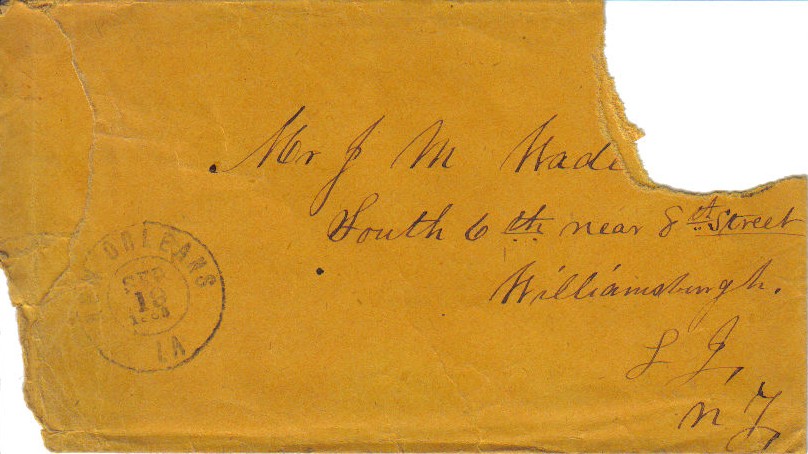 Mr J M Wade
South 6th near 8th Street
Williamsburgh.
L I,
N Y,
NEW ORLEANS
18
LA